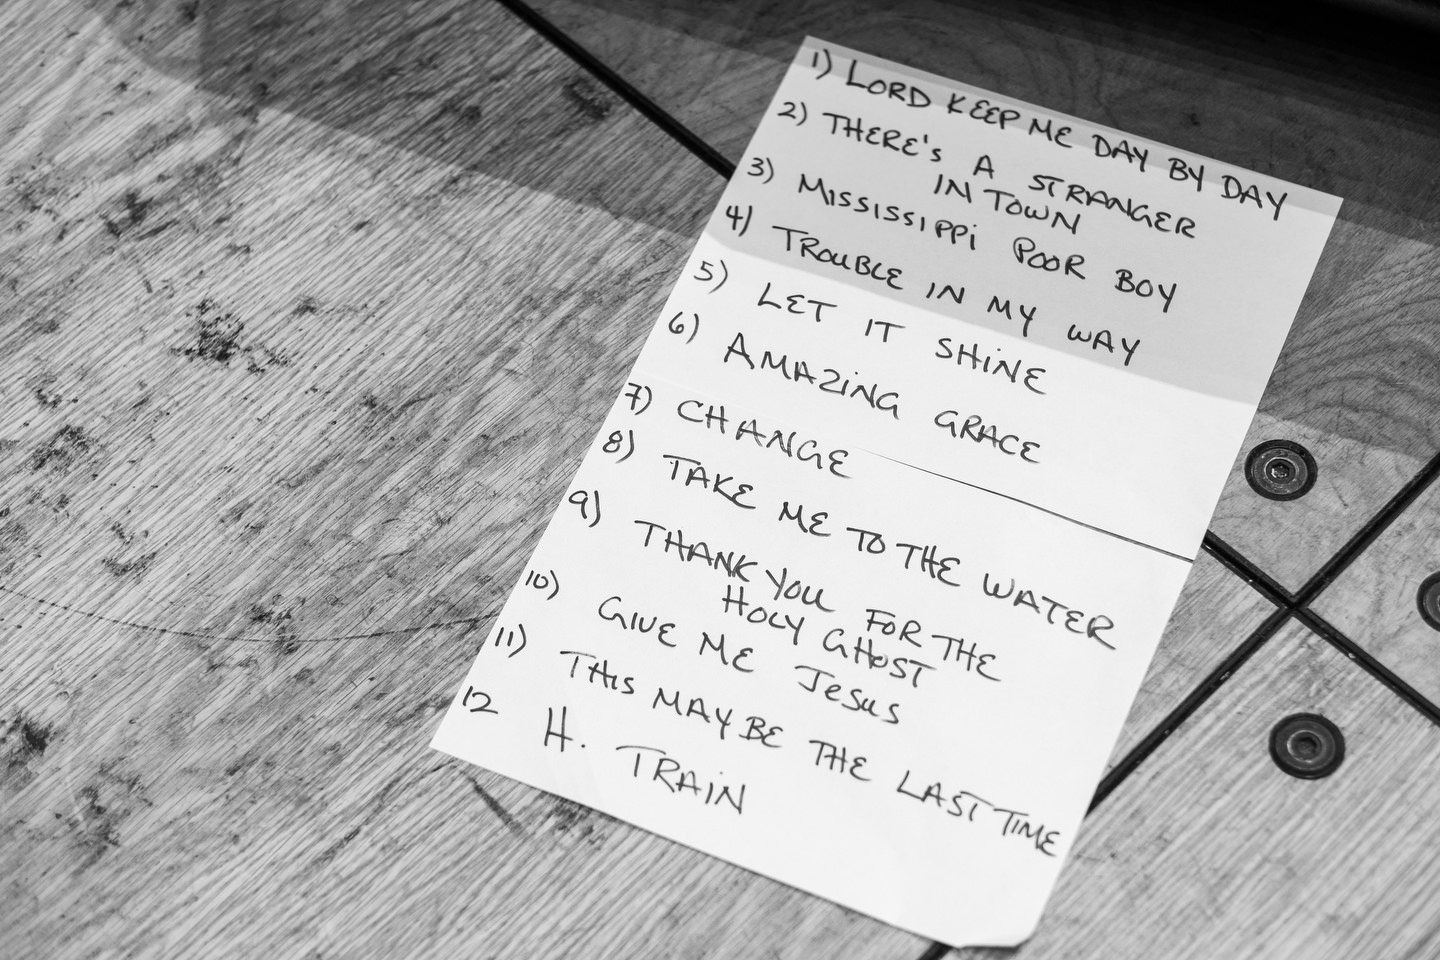 1) LORD KEEP ME DAY BY DAY
2) THERE'S A STRANGER
IN TOWN
3) MISSISSIPPi POOR BOY
4) TROUBLE IN MY WAY
5) LET IT SHINE
6) AMAZING GRACE
7) CHANGE
8) TAKE ME TO THE WATER
9) THANK YOU FOR THE
HOLY GHOST
10) GIVE ME JeSuS
11) THIS MAY BE THE LAST TIME
12 H. TRAiN